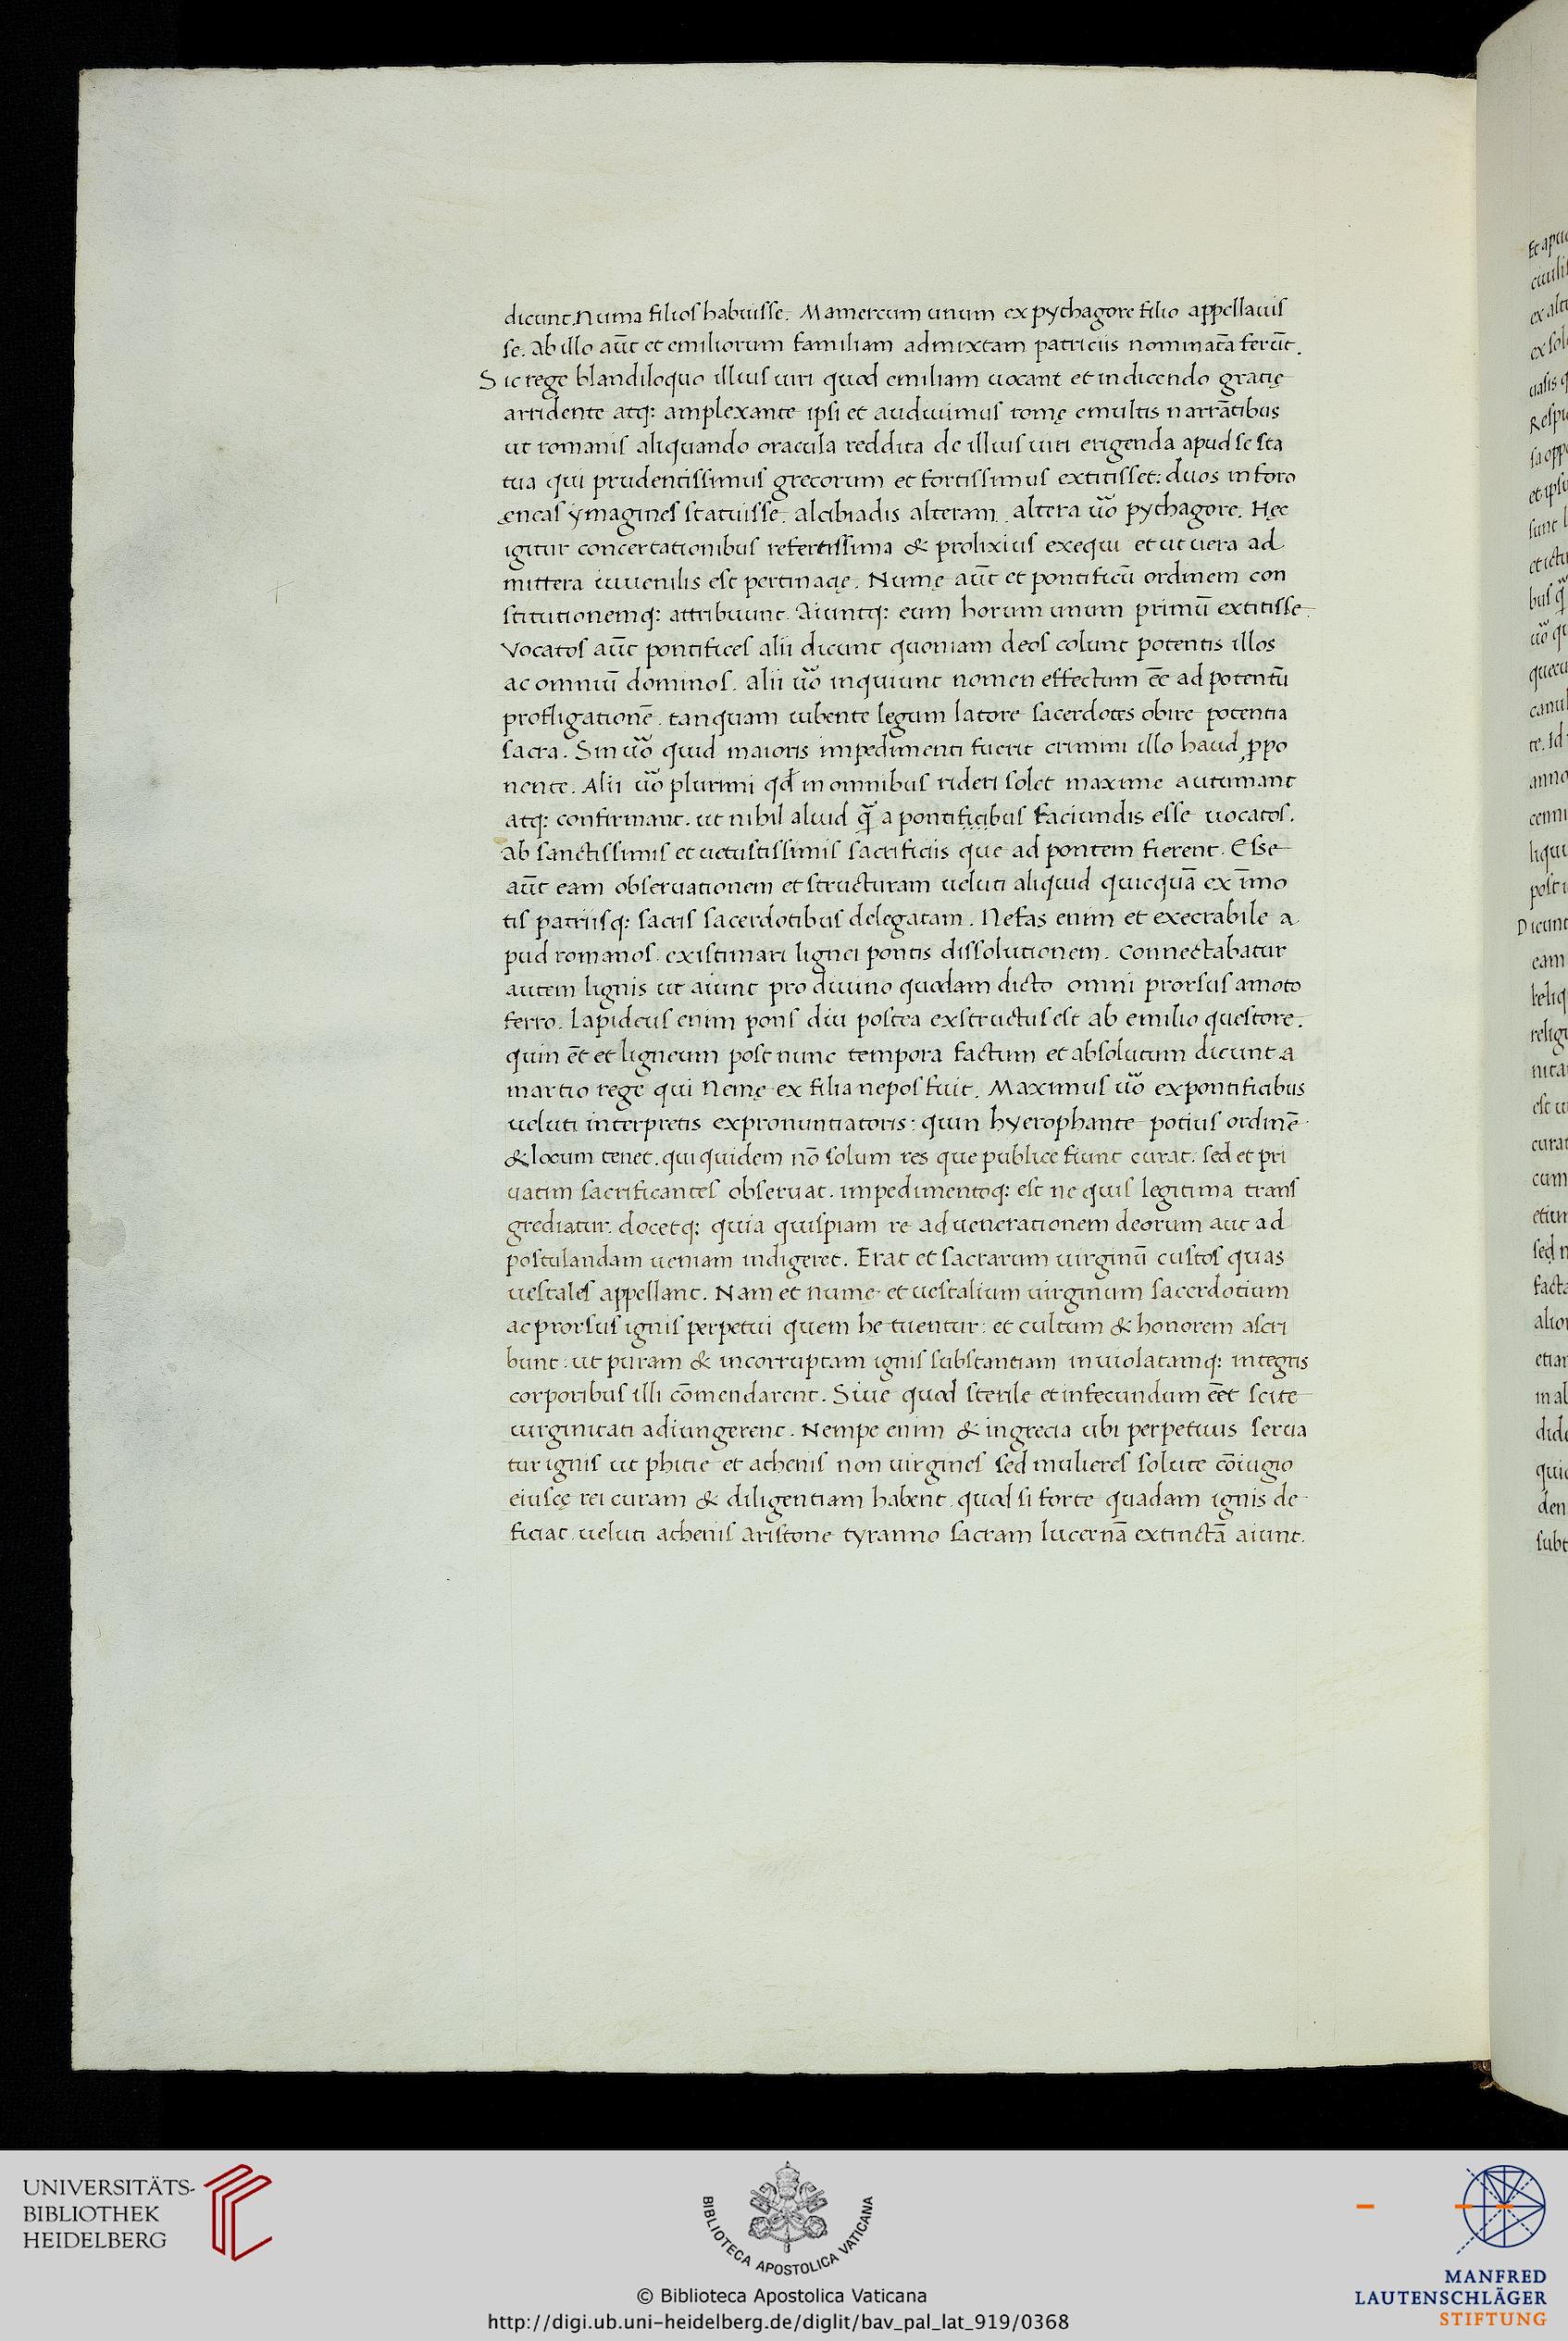 dicunt. Numa filios habuisse. Mamercum unum ex pythagore filio appellauis
se. Ab illo aūt et emiliorum familiam admixtam patriciis nominatā ferūt.
Sic rege blandiloquo illius uiri quod emiliam uocant et in dicendo gratię
arridente atq: amplexante ipsi et audiuimus romę emultis narrātibus
ut romanis aliquando oracula reddita de illius uiri erigenda apud se sta
tua qui prudentissimus grecorum et fortissimus extitisset: duos in foro
ęneas ymagines statuisse. alcibiadis alteram. altera ūo pythagore. Hęc
igitur concertationibus refertissima & prolixius exequi et ut uera ad
mittera iuuenilis est pertinacię. Numę aūt et pontificū ordinem con
stitutionemq: attribuunt. Aiuntq: eum horum unum primū extitisse.
Vocatos aūt pontifices alii dicunt quoniam deos colunt potentis illos
ac omniū dominos. alii ūo inquiunt nomen effectum ēē ad potentū
profligationē. tanquam iubente legum latore sacerdotes obire potentia
sacra. Sin ūo quid maioris impedimenti fuerit crimini illo haud ꝓpo
nente. Alii ūo plurimi qđ in omnibus rideri solet maxime autumant
atq: confirmant. ut nihil aliud q̄ a pontificibus faciundis esse uocatos.
ab sanctissimis et uetustissimis sacrificiis que ad pontem fierent. Esse
aūt eam obseruationem et structuram ueluti aliquid quicquā ex īmo
tis patriisq: sacris sacerdotibus delegatam. Nefas enim et execrabile a
pud romanos existimari lignei pontis dissolutionem. connectabatur
autem lignis ut aiunt pro diuino quodam dicto omni prorsus amoto
ferro. Lapideus enim pons diu postea exstructus est ab emilio questore.
quin ēt et ligneum post nunc tempora factum et absolutum dicunt a
martio rege qui Nemę ex filia nepos fuit. Maximus ūo ex pontificibus
ueluti interpretis expronuntiatoris: quin hyerophante potius ordinē
& locum tenet. qui quidem nō solum res que publice fiunt curat. sed et pri
uatim sacrificantes obseruat. impedimentoq: est ne quis legitima trans
grediatur. docetq: quia quispiam re ad uenerationem deorum aut ad
postulandam ueniam indigeret. Erat et sacrarum uirginū custos quas
uestales appellant. Nam et nume et uestalium uirginum sacerdotium
ac prorsus ignis perpetui quem he tuentur: et cultum & honorem ascri
bunt: ut puram & incorruptam ignis substantiam inuiolatamq: integris
corporibus illi cōmendarent. Siue quod sterile et infecundum eēt scite
uirginitati adiungerent. Nempe enim & in grecia ubi perpetuus serua
tur ignis ut phitie et athenis non uirgines sed mulieres solute cōiugio
eiuscę rei curam & diligentiam habent. quod si forte quadam ignis de
ficiat. ueluti athenis aristone tyranno sacram lucernā extinctā aiunt.
UNIVERSITÄTS-
BIBLIOTHEK
HEIDELBERG
BIBLIOTECA APOSTOLICA VATICANA
© Biblioteca Apostolica Vaticana
http://digi.ub.uni-heidelberg.de/diglit/bav_pal_lat_919/0368
MANFRED
LAUTENSCHLÄGER
STIFTUNG